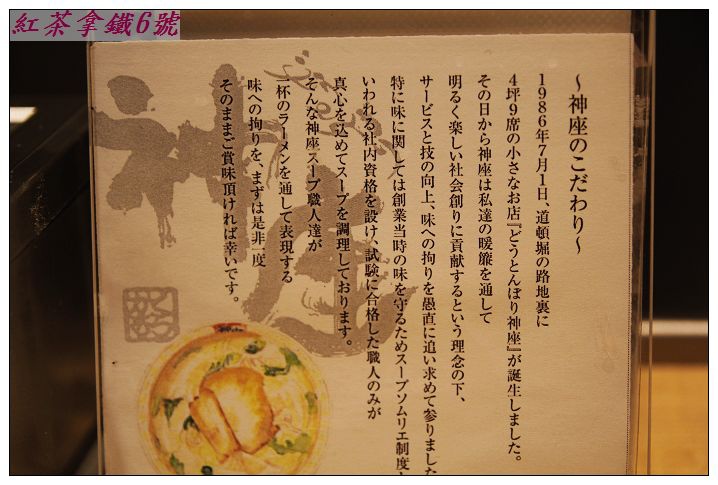 紅茶拿鐵6號
～神座のこだわり～
1986年7月1日、道頓堀の路地裏に
4坪9席の小さなお店『どうとんぼり神座』が誕生しました。
その日から神座は私達の暖簾を通して
明るく楽しい社会創りに貢献するという理念の下、
サービスと技の向上、味への拘りを愚直に追い求めて参りました
特に味に関しては創業当時の味を守るためスープソムリエ制度
いわれる社内資格を設け、試験に合格した職人のみが
真心を込めてスープを調理しております。
そんな神座スープ職人達が
一杯のラーメンを通して表現する
味への拘りを、まずは是非一度
そのままご賞味頂ければ幸いです。
神座
かむくら